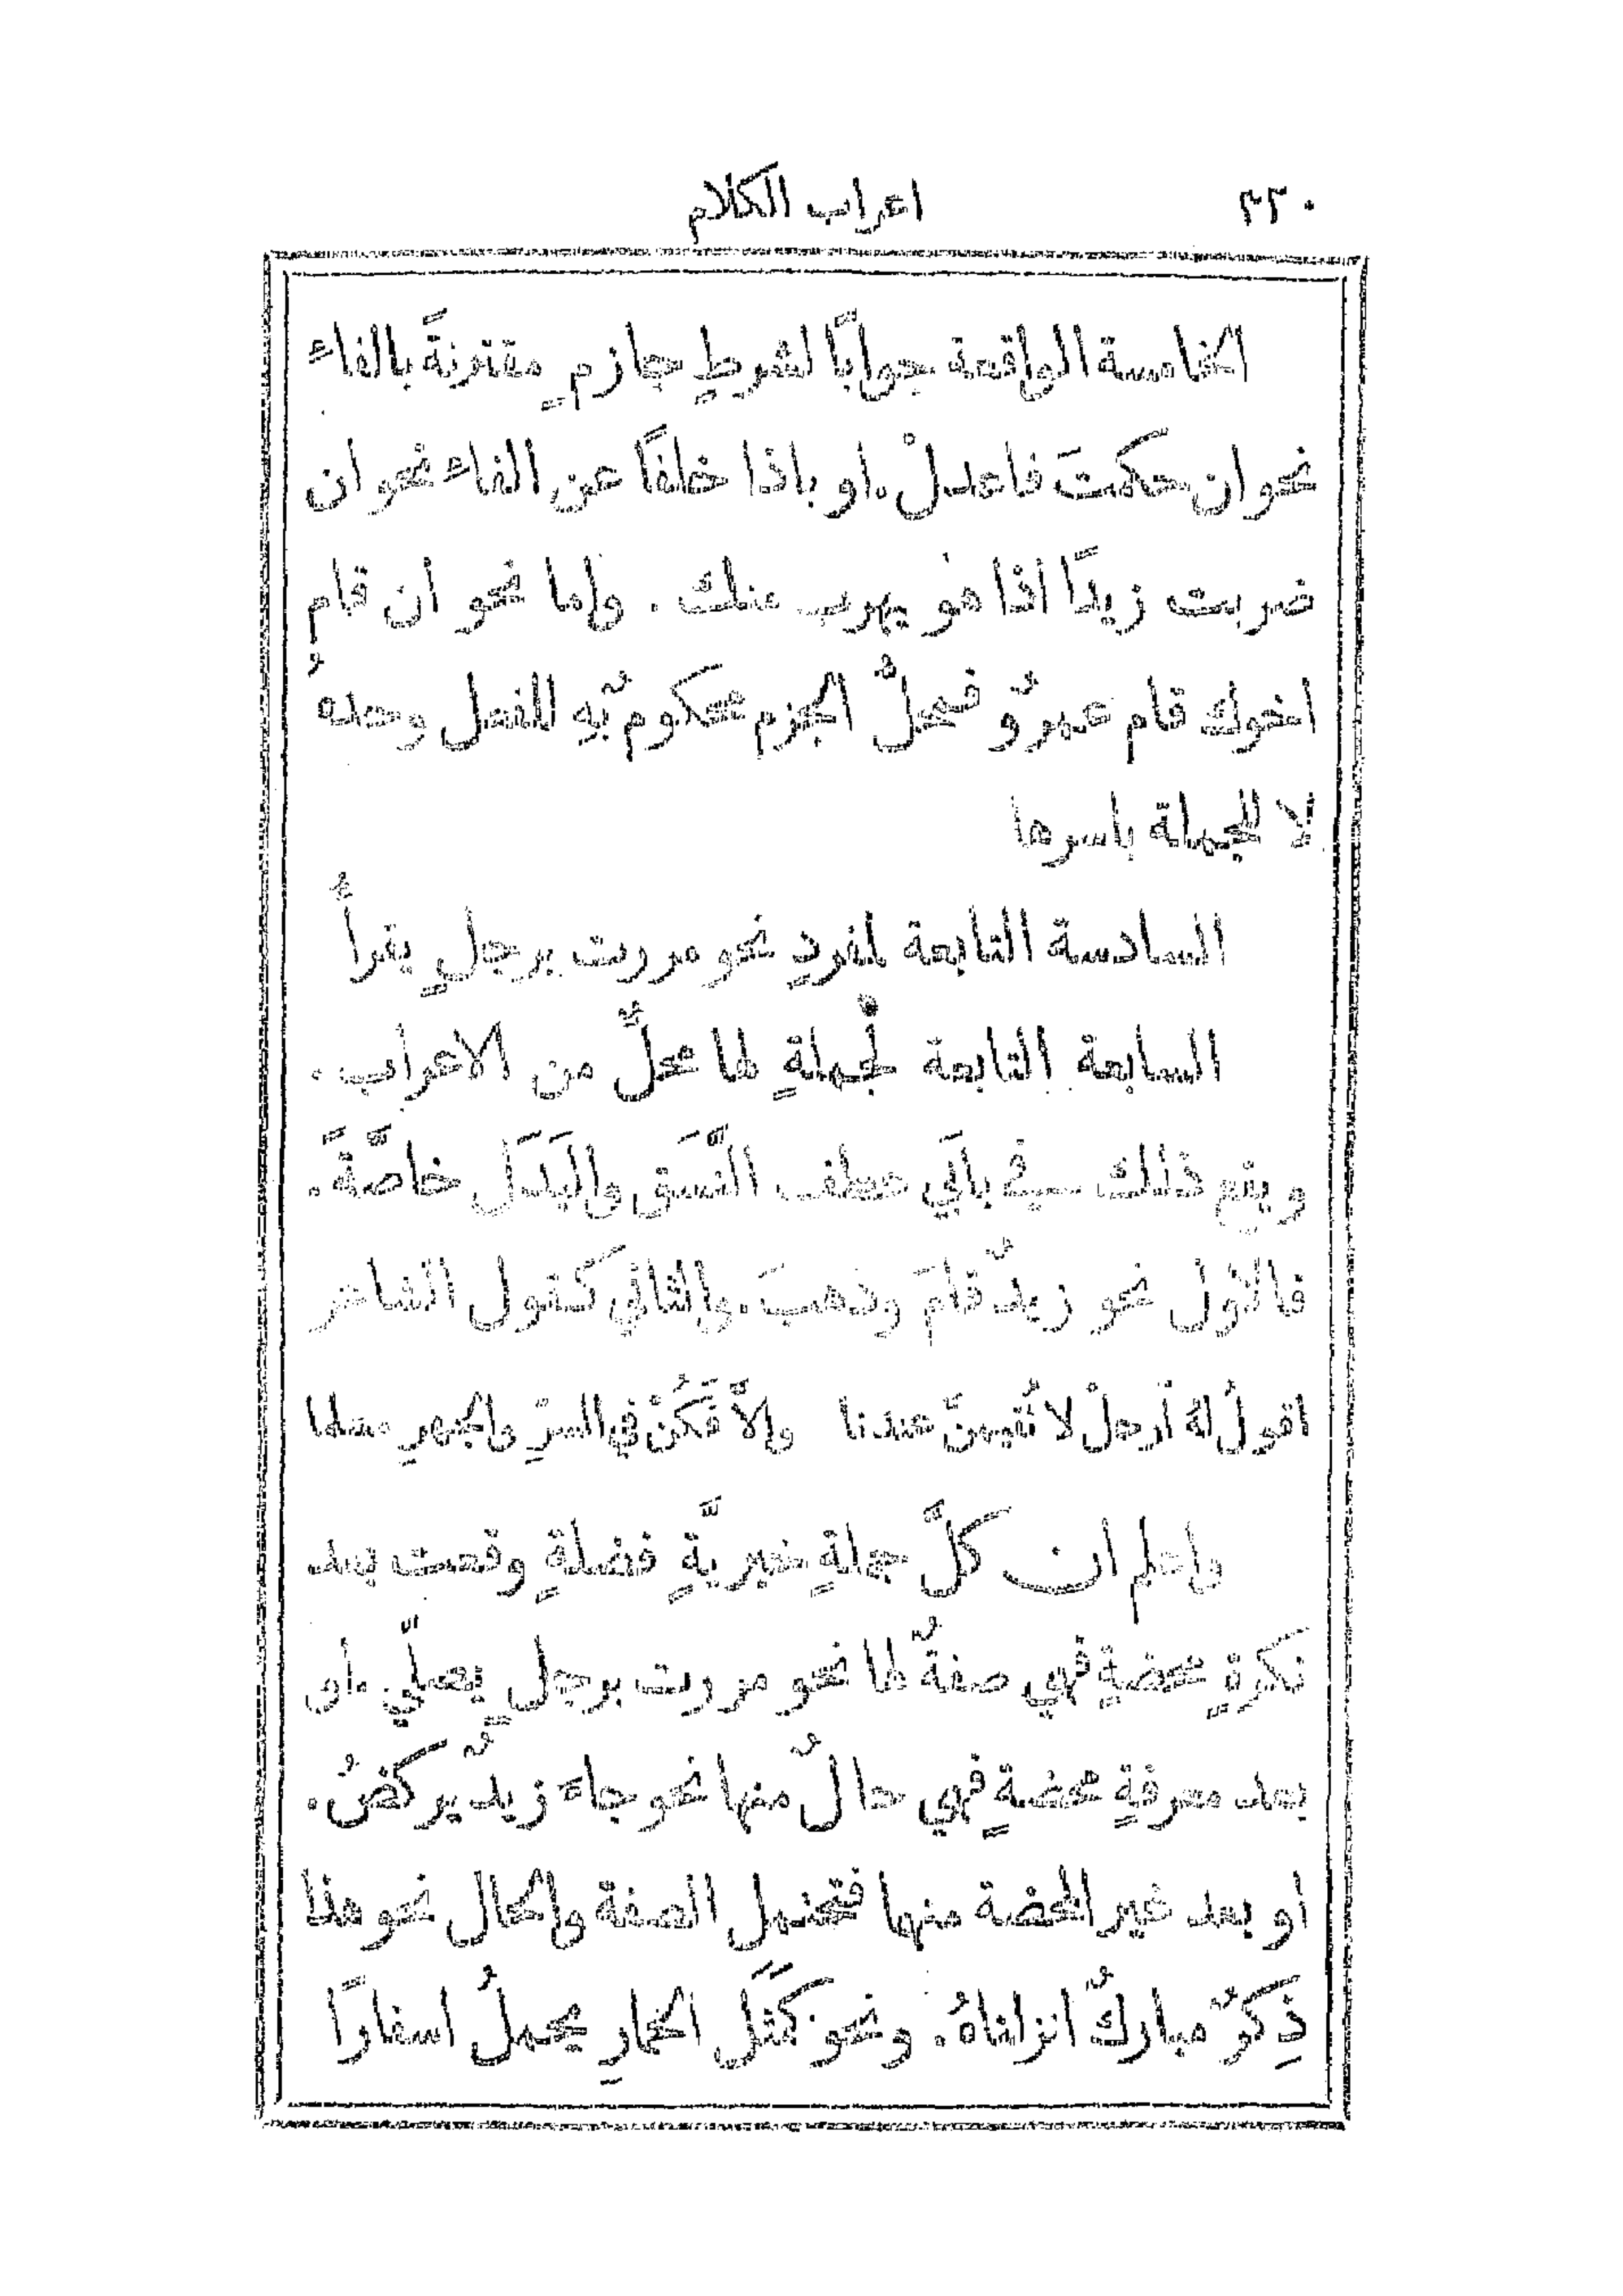 ٢٢٠ اعراب الكلام
الخامسة الواقعة جوابًا لشرطٍ جازمٍ مقترنةً بالفاء
نحو ان حكمتَ فاعدلْ. او باذا خلفًا عن الفاء نحو ان
ضربت زيدًا اذا هو يهرب منك. واما نحو ان قام
اخوك قام عمرٌو فمحلُّ الجزم محكومٌ بهِ للفعل وحدهُ
لا للجملة باسرها
السادسة التابعة لمفردٍ نحو مررت برجلٍ يقرأُ
السابعة التابعة لجملةٍ لها محلٌّ من الاعراب.
ويقع ذلك في بابَي عطف النَّسَق والبَدَل خاصَّةً.
فالاوَّل نحو زيدٌ قامَ وذهبَ. والثاني كقول الشاعر
اقولُ لهُ ارحلْ لا تُقيمنَّ عندنا والَّا فَكُنْ في السرِّ والجهرِ مسلما
واعلم ان كلَّ جملةٍ خبريَّةٍ فضلةٍ وقعت بعد
نكرةٍ محضةٍ فهي صفةٌ لها نحو مررت برجلٍ يصلّي. او
بعد معرفةٍ محضةٍ فهي حالٌ منها نحو جاءَ زيدٌ يركضُ.
او بعد غير المحضة منها فتحتمل الصفة والحال نحو هذا
ذِكرٌ مباركٌ انزلناهُ. ونحو كَمَثَل الحمارِ يحملُ اسفارًا